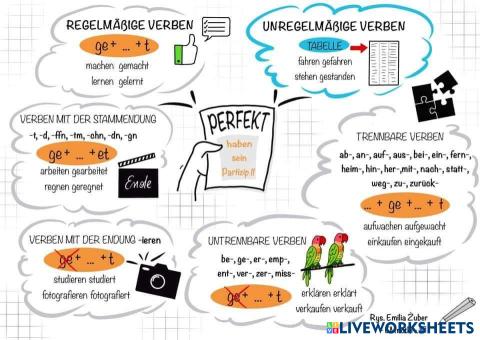 REGELMÄßIGE VERBEN
ge + ... + t
machen gemacht
lernen gelernt
UNREGELMÄßIGE VERBEN
TABELLE
fahren gefahren
stehen gestanden
VERBEN MIT DER STAMMENDUNG
-t, -d, -ffn, -tm, -chn, -dn, -gn
ge + ... + et
arbeiten gearbeitet
regnen geregnet
Ende
PERFEKT
haben
sein
Partizip II
TRENNBARE VERBEN
ab-, an-, auf-, aus-, bei-, ein-, fern-,
heim-, hin-, her-,mit-, nach-, statt-,
weg-, zu-, zurück-
... + ge +... + t
aufwachen aufgewacht
einkaufen eingekauft
VERBEN MIT DER ENDUNG -ieren
ge + ... + t
studieren studiert
fotografieren fotografiert
UNTRENNBARE VERBEN
be-, ge-, er-, emp-,
ent-, ver-, zer-, miss-
ge + ... + t
erklären erklärt
verkaufen verkauft
Rys. Emilia Żuber
LIVEWORKSHEETS